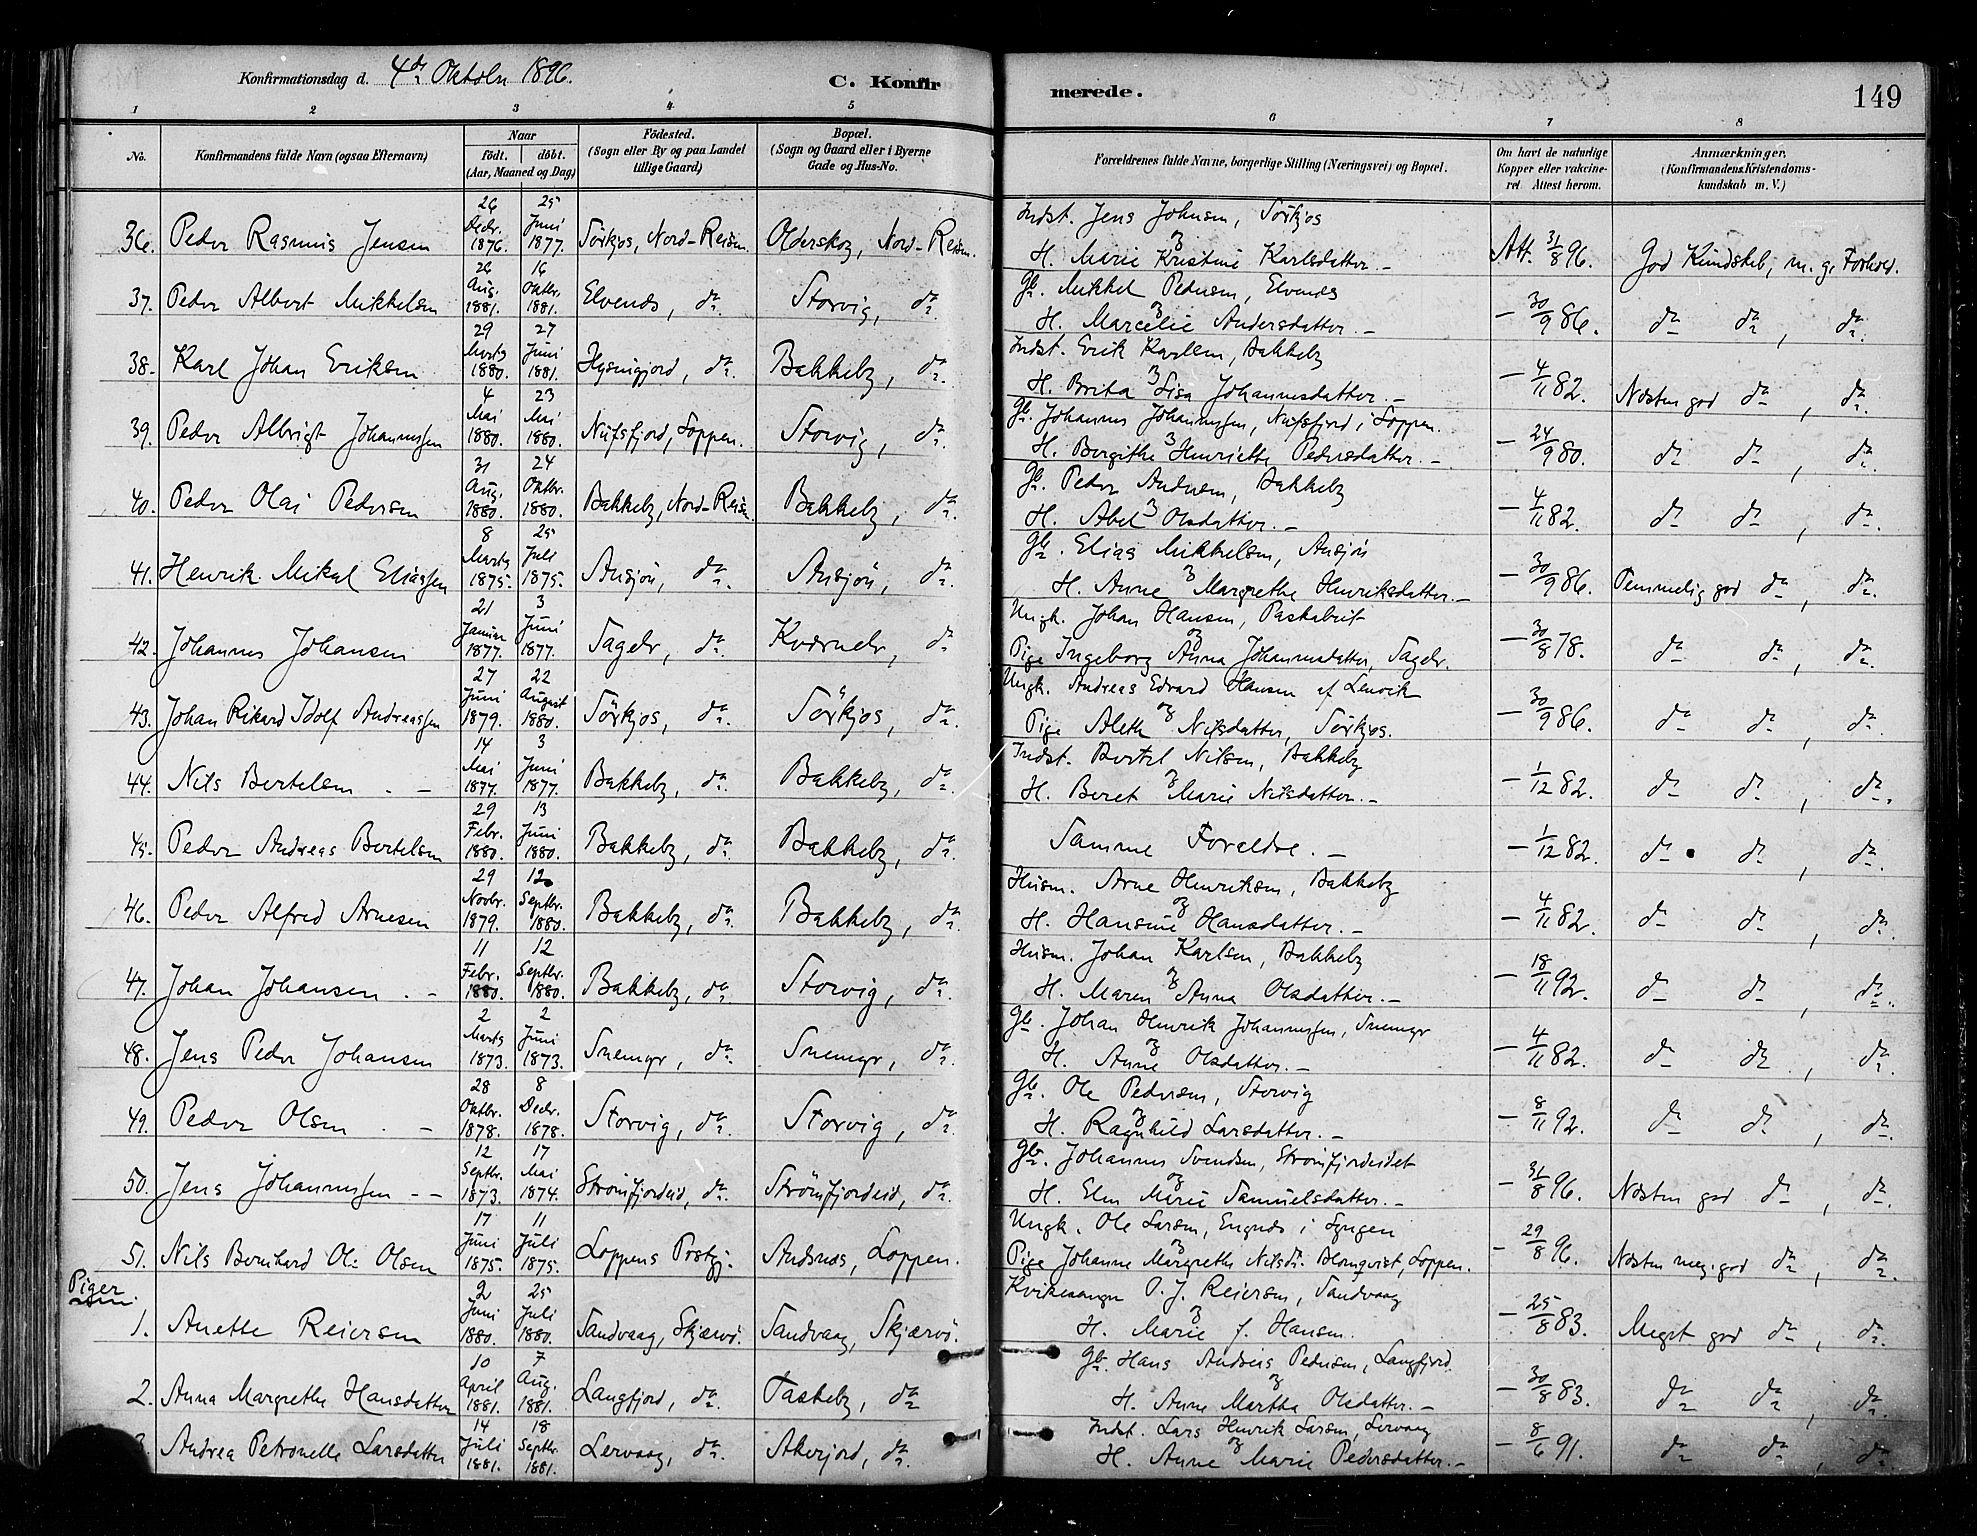 Konfirmationsdag d. 4de Oktober 1896.
C. Konfirmerede.
149
1 2 3 4 5 6 7 8
No. | Konfirmandens fulde Navn (ogsaa Efternavn) | Naar födt. döbt. (Aar, Maaned og Dag) | Födested. (Sogn eller By og paa Landet tillige Gaard) | Bopæl. (Sogn og Gaard eller i Byerne Gade og Hus-No. | Forældrenes fulde Navne, borgerlige Stilling (Næringsvei) og Bopæl. | Om havt de naturlige Kopper eller vakcineret. Attest herom. | Anmærkninger. (Konfirmandens Kristendomskundskab m. V.)
36. Peder Rasmus Jensen | 26 Decbr. 1876. | 25 Juni 1877. | Sörkjos, Nord-Reisen. | Olderskog, Nord-Reisen. | Indst. Jens Johnsen, Sörkjos og H. Marie Kristine Karlsdatter.- | Att. 31/8 96. | God Kundskab, m. g. Forhold.
37. Peder Albert Mikkelsen | 26 Aug. 1881. | 16 Oktbr. 1881. | Elvenes, do. | Storvig, do. | Gbr. Mikkel Pedersen, Elvenes og H. Marcelie Andersdatter.- | - 30/9 86. | do do, do.
38. Karl Johan Eriksen | 29 Marts 1880. | 27 Juni 1881. | do. | Bakkeby, do. | Indst. Erik Karlsen, Bakkeby og H. Brita Lisa Johannesdatter.- | - 4/11 82. | Næsten god do, do.
39. Peder Albrigt Johannessen | 4 Mai 1880. | 23 Mai 1880. | Nufsfjord, Loppen. | Storvig, do. | Gbr. Johannes Johannessen, Nufsfjord i Loppen. og H. Bergithe Henriette Pedersdatter.- | - 24/9 80. | do do, do.
40. Peder Olai Pedersen | 31 Aug. 1880. | 24 Oktbr. 1880. | Bakkeby, Nord-Reisen. | Bakkeby, do. | Gbr. Peder Andersen, Bakkeby og H. Abel Olsdatter.- | - 4/11 82. | do do, do.
41. Henrik Mikal Eliassen | 8 Marts 1875. | 25 Juli 1875. | Ansjön, do. | Ansjön, do. | Gbr. Elias Mikkelsen, Ansjön og H. Anne Margrethe Henriksdatter.- | - 30/9 86. | Temmelig god do, do.
42. Johannes Johansen | 21 Januar 1877. | 3 Juni 1877. | Sagelv, do. | Kværnelv, do | Ungk. Johan Hansen, og Pige Ingeborg Anna Johannesdatter, Sagelv. | - 30/8 78. | do do, do.
43. Johan Rikard Idolf Andreassen | 27 Juni 1879. | 22 August 1880. | Sörkjos, do. | Sörkjos, do. | Ungk. Andreas Edvard Hansen af Lenvik og Pige Aleth Nilsdatter, Sörkjos. | - 30/9 86. | do do, do.
44. Nils Bertelsen . - | 14 Mai 1877. | 3 Juni 1877. | Bakkeby, do. | Bakkeby, do. | Indst. Bertel Nilsen, Bakkeby og H. Beret Marie Nilsdatter.- | - 1/12 82. | do do, do.
45. Peder Andreas Bertelsen | 29 Febr. 1880. | 13 Juni 1880. | Bakkeby, do. | Bakkeby, do. | Samme Forældre. - | - 1/12 82. | do do, do.
46. Peder Alfred Arnesen | 29 Novbr. 1879. | 12 Septbr. 1880. | Bakkeby, do. | Bakkeby, do. | Husm. Arne Henriksen, Bakkeby og H. Hansine Hansdatter.- | - 4/11 82. | do do, do.
47. Johan Johansen . - | 11 Febr. 1880. | 12 Septbr. 1880. | Bakkeby, do. | Storvig, do. | Husm. Johan Karlsen, Bakkeby og H. Maren Anna Olsdatter.- | - 18/11 92. | do do, do.
48. Jens Peder Johansen | 2 Marts 1873. | 2 Juni 1873. | Snemyr, do. | Snemyr, do. | Gbr. Johan Henrik Johannessen, Snemyr og H. Anne Olsdatter.- | - 4/11 82. | do do, do.
49. Peder Olsen . - | 28 Oktbr. 1878. | 8 Decbr. 1878. | Storvig, do. | Storvig, do. | Gbr. Ole Pedersen, Storvig og H. Ragnhild Larsdatter.- | - 8/11 92. | do do, do.
50. Jens Johannessen - - | 12 Septbr. 1873. | 17 Mai 1874. | Strömfjordeid, do. | Strömfjordeid, do. | Gbr. Johannes Svendsen, Strömfjordeidet og H. Elen Marie Samuelsdatter.- | - 31/8 96. | Næsten god do, do.
51. Nils Bernhard Oli Olsen | 17 Juni 1875. | 11 Juli 1875. | Loppens Prstgj. | Andsnes, Loppen. | Ungk. Ole Larsen, Engnes i Lyngen og Pige Johanne Margrethe Nilsdr. Blomqvist, Loppen. | - 29/8 96. | Næsten meg. god do, do.
Piger
1. Anette Reiersen | 2 Juni 1880. | 25 Juli 1880. | Sandvaag, Skjærvö. | Sandvaag, Skjærvö. | Kirkesanger O. J. Reiersen, Sandvaag og H. Marie f. Hansen. | - 25/8 83. | Meget god do, do.
2. Anna Margrethe Hansdatter | 10 April 1881. | 7 Aug. 1881. | Langfjord, do. | Taskeby, do | Gbr. Hans Andreas Pedersen, Langfjord. og H. Anne Martha Olsdatter.- | - 30/8 83. | do do, do.
3. Andrea Petronelle Larsdatter | 14 Juli 1881. | 18 Septbr. 1881. | Lervaag, do. | Akerjord, do. | Indst. Lars Henrik Larsen, Lervaag og H. Anne Marie Pedersdatter.- | - 8/6 91. | do do, do.